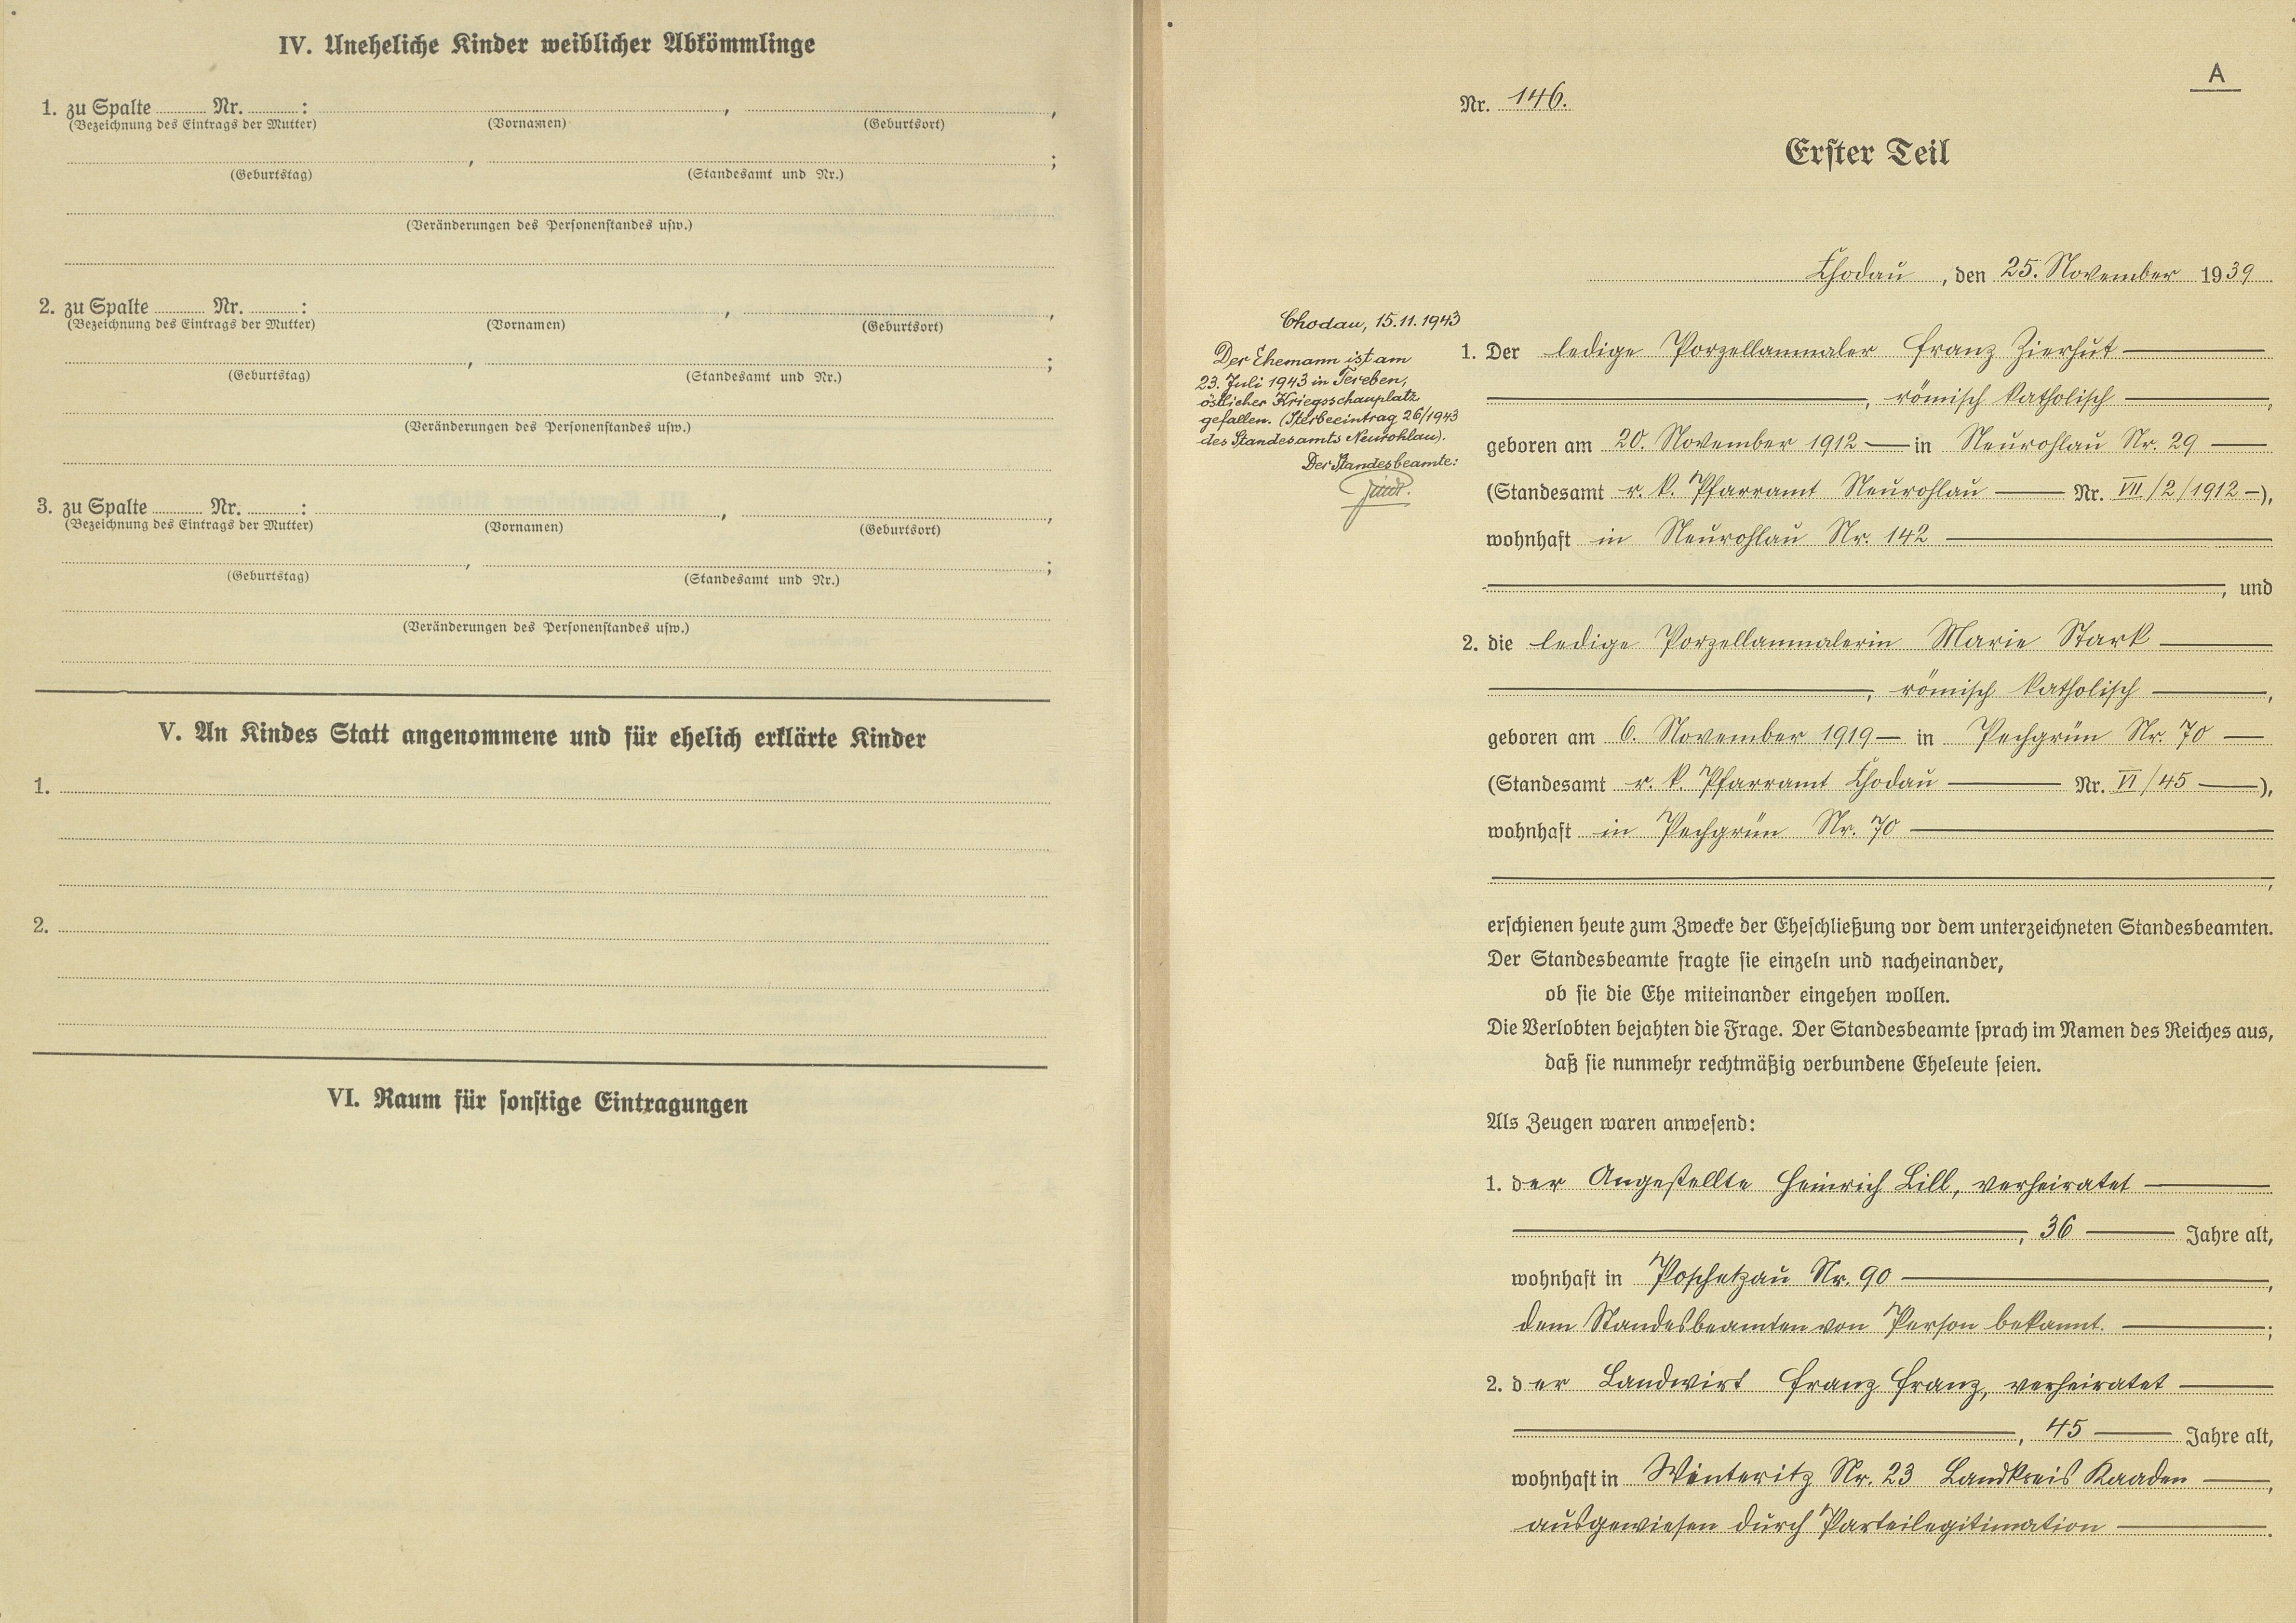 IV. Uneheliche Kinder weiblicher Abkömmlinge
1. zu Spalte ........ Nr. ........ : ........ , ........ ,
(Bezeichnung des Eintrags der Mutter) (Vornamen) (Geburtsort)
........ , ........ ;
(Geburtstag) (Standesamt und Nr.)
(Veränderungen des Personenstandes usw.)
2. zu Spalte ........ Nr. ........ : ........ , ........ ,
(Bezeichnung des Eintrags der Mutter) (Vornamen) (Geburtsort)
........ , ........ ;
(Geburtstag) (Standesamt und Nr.)
(Veränderungen des Personenstandes usw.)
3. zu Spalte ........ Nr. ........ : ........ , ........ ,
(Bezeichnung des Eintrags der Mutter) (Vornamen) (Geburtsort)
........ , ........ ;
(Geburtstag) (Standesamt und Nr.)
(Veränderungen des Personenstandes usw.)
V. An Kindes Statt angenommene und für ehelich erklärte Kinder
1.
2.
VI. Raum für sonstige Eintragungen
A
Nr. 146.
Erster Teil
Chodau, den 25. November 1939
Chodau, 15.11.1943
Der Ehemann ist am
23. Juli 1943 in Tereben,
östlicher Kriegsschauplatz
gefallen. (Sterbeeintrag 26/1943
des Standesamts Neurohlau).
Der Standesbeamte:
1. Der ledige Porzellanmaler Franz Zierhut —
—, römisch katholisch —,
geboren am 20. November 1912 — in Neurohlau Nr. 29 —
(Standesamt r. k. Pfarramt Neurohlau — Nr. VII/2/1912 —),
wohnhaft in Neurohlau Nr. 142 —
—, und
2. die ledige Porzellanmalerin Marie Stark —
—, römisch katholisch —,
geboren am 6. November 1919 — in Pechgrün Nr. 70 —
(Standesamt r. k. Pfarramt Chodau — Nr. VI/45 —),
wohnhaft in Pechgrün Nr. 70 —
—,
erschienen heute zum Zwecke der Eheschließung vor dem unterzeichneten Standesbeamten.
Der Standesbeamte fragte sie einzeln und nacheinander,
ob sie die Ehe miteinander eingehen wollen.
Die Verlobten bejahten die Frage. Der Standesbeamte sprach im Namen des Reiches aus,
daß sie nunmehr rechtmäßig verbundene Eheleute seien.
Als Zeugen waren anwesend:
1. der Angestellte Heinrich Lill, verheiratet —
—, 36 — Jahre alt,
wohnhaft in Poschetzau Nr. 90 —,
dem Standesbeamten von Person bekannt. —;
2. der Landwirt Franz Franz, verheiratet —
—, 45 — Jahre alt,
wohnhaft in Winteritz Nr. 23 Landkreis Kaaden —,
ausgewiesen durch Parteilegitimation —.